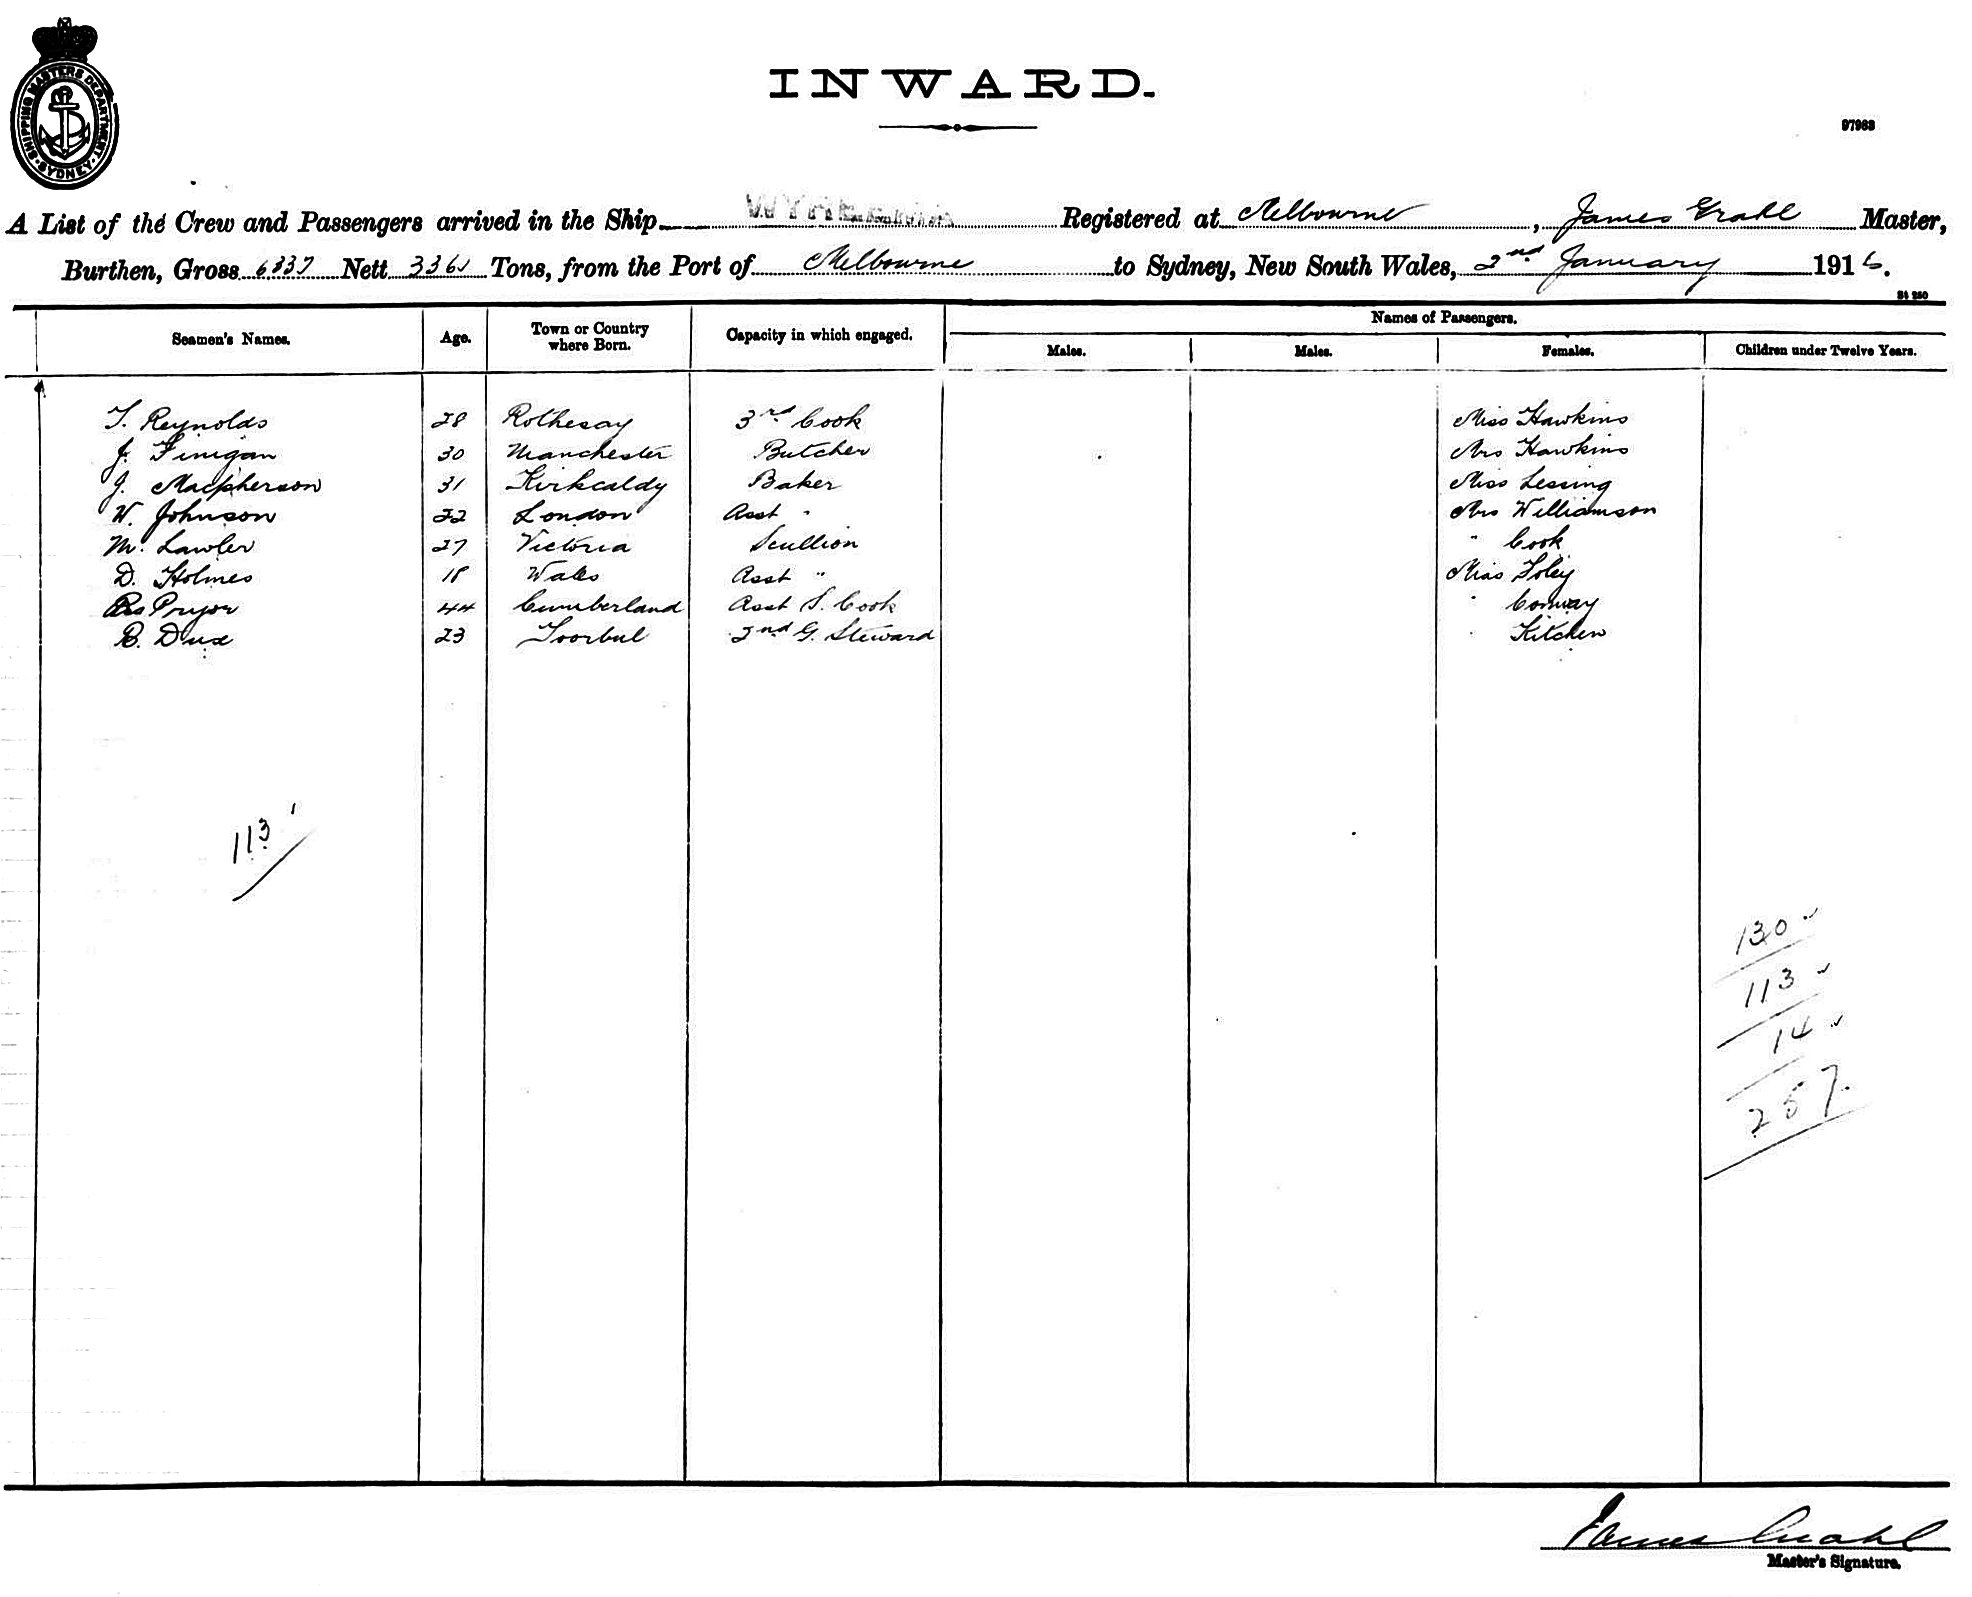 SHIPPING MASTERS DEPARTMENT · SYDNEY ·
INWARD.
97963
A List of the Crew and Passengers arrived in the Ship Registered at Melbourne, James Grahl Master,
Burthen, Gross 6337 Nett Tons, from the Port of Melbourne to Sydney, New South Wales, 2nd January 1916.
St 250
Seamen's Names. Age. Town or Country where Born. Capacity in which engaged. Names of Passengers.
Males. Males. Females. Children under Twelve Years.
T. Reynolds 28 Rothesay 3rd Cook Miss Hawkins
J. Finigan 30 Manchester Butcher Mrs Hawkins
J. Macpherson 31 Kirkcaldy Baker Miss Lessing
W. Johnson 22 London Asst " Mrs Williamson
M. Lawler 27 Victoria Scullion " Cook
D. Holmes 18 Wales Asst " Miss Foley
Pryor 44 Cumberland Asst S. Cook " Conway
B. Dux 23 Toorbul 2nd G. Steward " Kitchen
113
130
113
14
257.
James Grahl
Master's Signature.